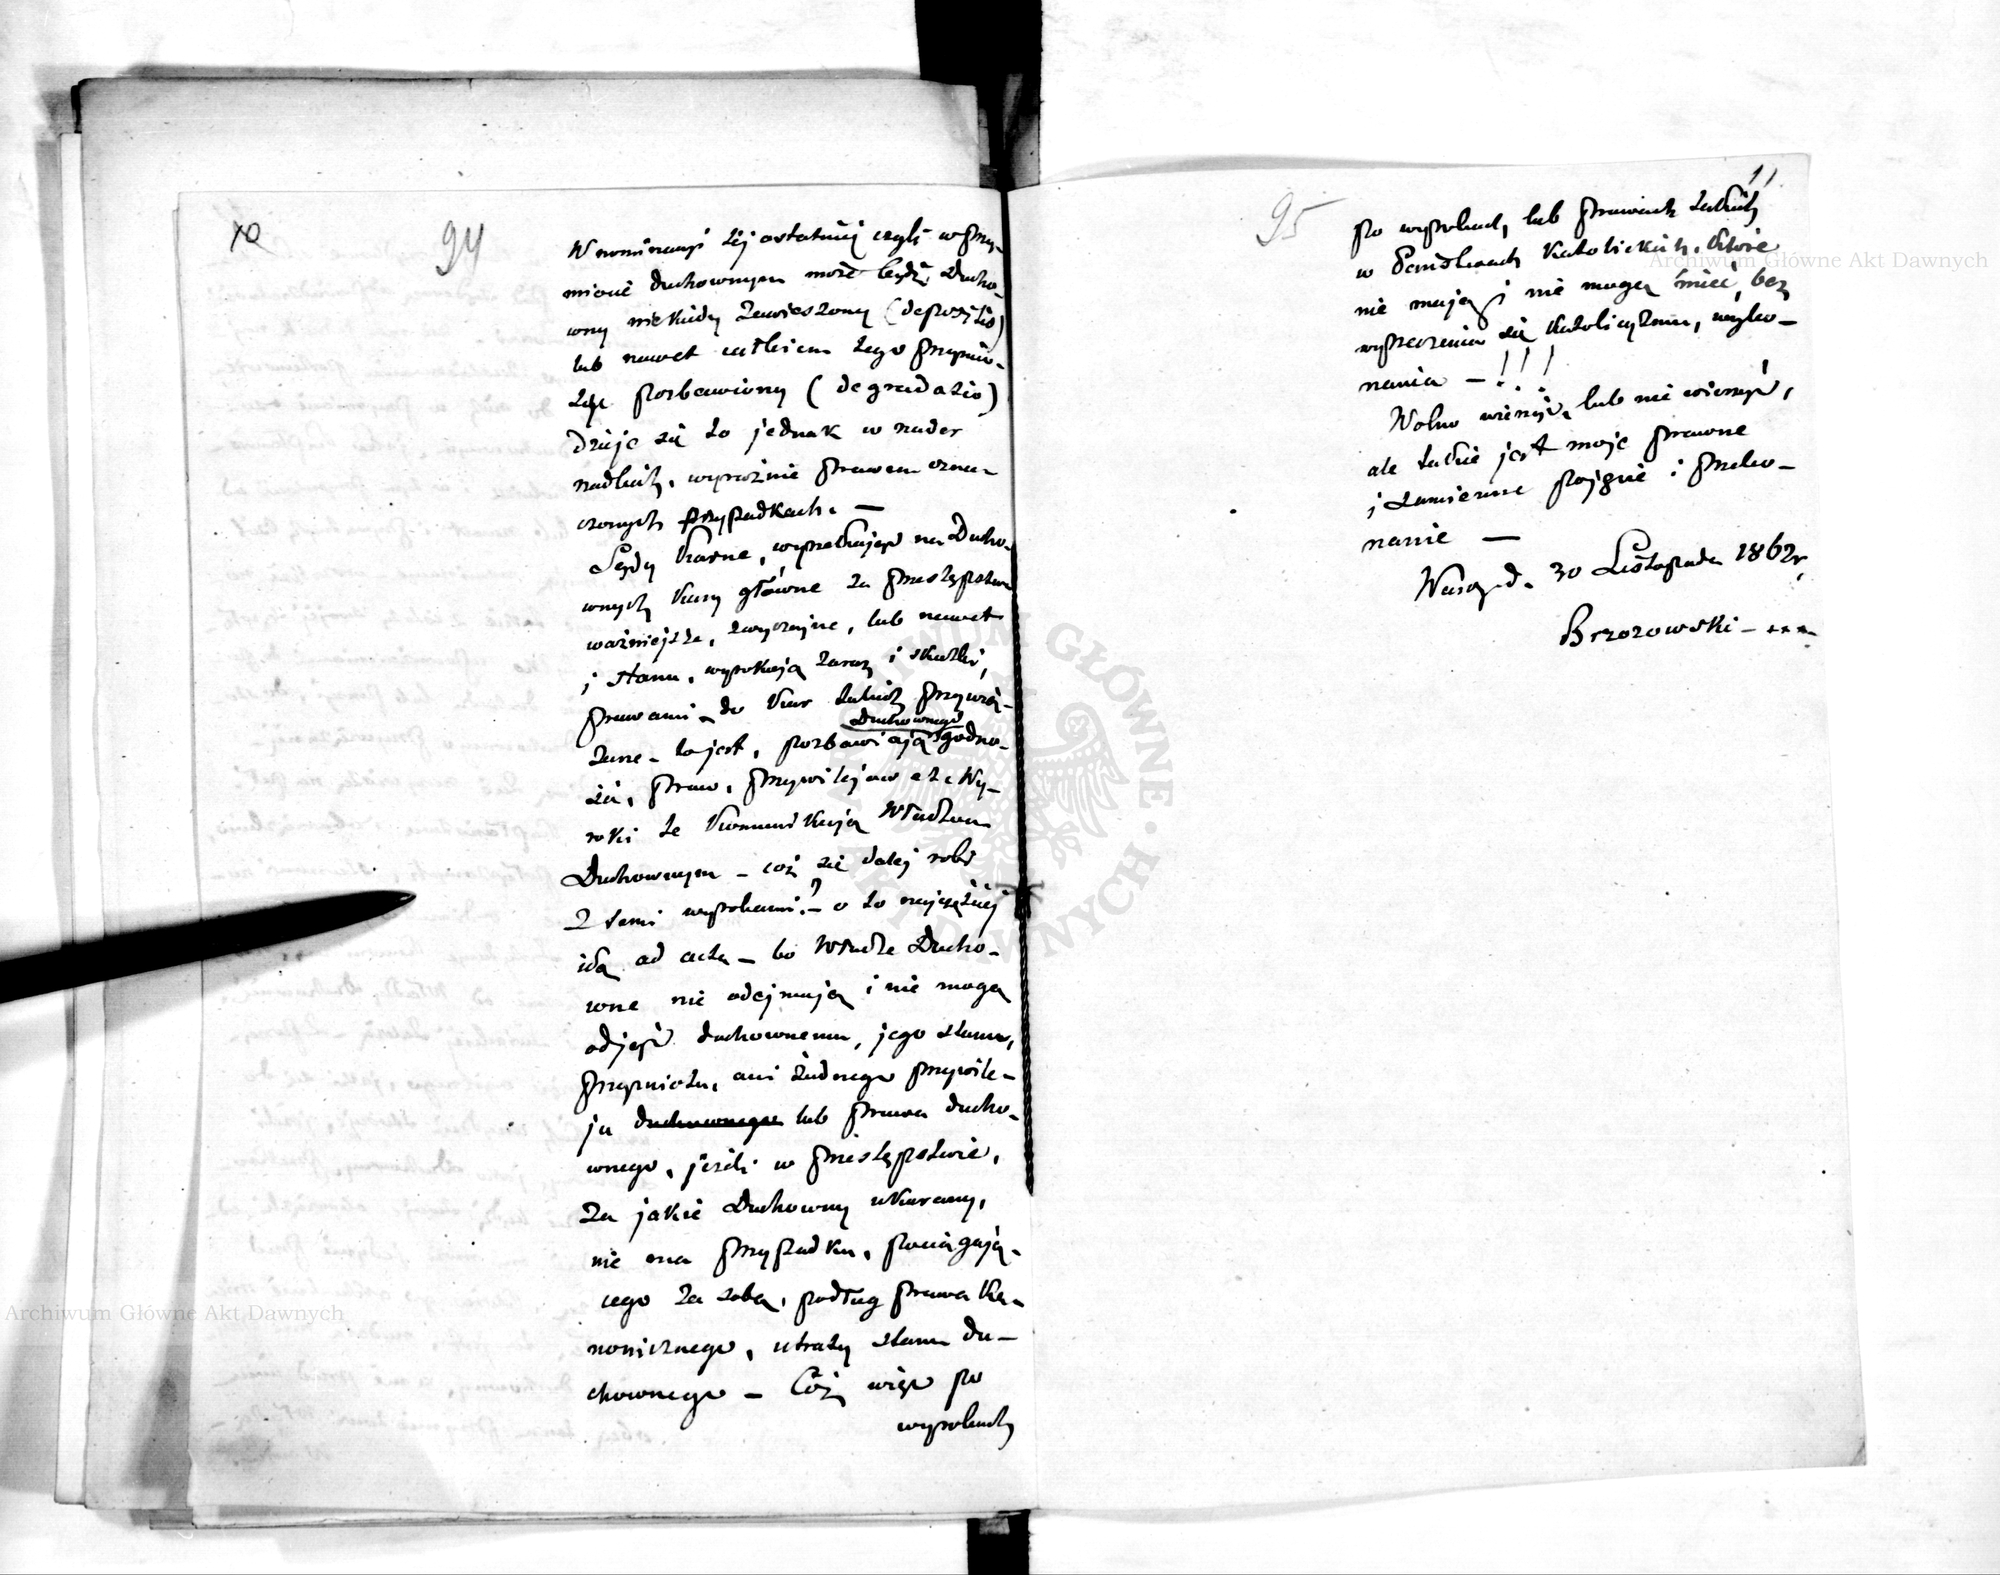 10
94
W nominacyi tej ostatniej czyli w przy-
miocie duchownym może bydź Ducho-
wny niekiedy zawieszony (depozitio)
lub nawet całkiem tego przymio-
tu pozbawiony (degradatio)
dzieje się to jednak w nader
rzadkich, wyraźnie prawem ozna-
czonych przypadkach. —
Sądy Karne, wyrzekając na Ducho-
wnych kary główne za przestępstwa
ważniejsze, zwyczajne, lub nawet
i stanu, wyrokują zaraz i skutki,
prawami do kar takich przywią-
zane — to jest, pozbawiają Duchownego godno-
ści, praw, przywilejów etc. Wy-
roki te kommunikują Władzom
Duchownym — cóż się dalej robi
z temi wyrokami? — o to najczęściej
idą ad acta — bo Władze Ducho-
wne nie odejmują i nie mogą
odjąć duchownemu, jego stanu,
przymiotu, ani żadnego przywile-
ju duchownego lub prawa ducho-
wnego, jeżeli w przestępstwie,
za jakie Duchowny ukarany,
nie ma przypadku, pociągają-
cego za sobą, podług prawa Ka-
nonicznego, utraty stanu du-
chownego — Cóż więc po
wyrokach
11
95
po wyrokach, lub prawach takich
w Państwach Katolickich, które
nie mają i nie mogą mieć, bez
wyrzeczenia się Katolicyzmu, wyko-
nania — !!!
Wolno wierzyć, lub nie wierzyć,
ale takie jest moje prawne
i sumienne pojęcie i przeko-
nanie —
30 Listopada 1862 r.
Brzozowski —
Archiwum Główne Akt Dawnych
Archiwum Główne Akt Dawnych